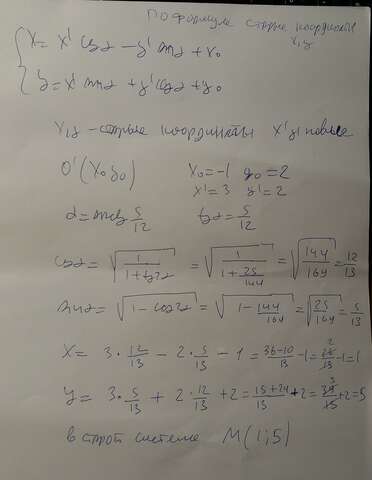 по формуле старые координаты
x,y
x = x' cos α − y' sin α + x₀
y = x' sin α + y' cos α + y₀
x,y - старые координаты x'y' новые
O'(x₀ y₀) x₀ = −1 y₀ = 2
x' = 3 y' = 2
α = arctg 5/12 tg α = 5/12
cos α = √(1/(1+tg²α)) = √(1/(1+25/144)) = √(144/169) = 12/13
sin α = √(1−cos²α) = √(1−144/169) = √(25/169) = 5/13
x = 3·12/13 − 2·5/13 − 1 = (36−10)/13 − 1 = 26/13 − 1 = 1
y = 3·5/13 + 2·12/13 + 2 = (15+24)/13 + 2 = 39/13 + 2 = 5
в старой системе M(1;5)